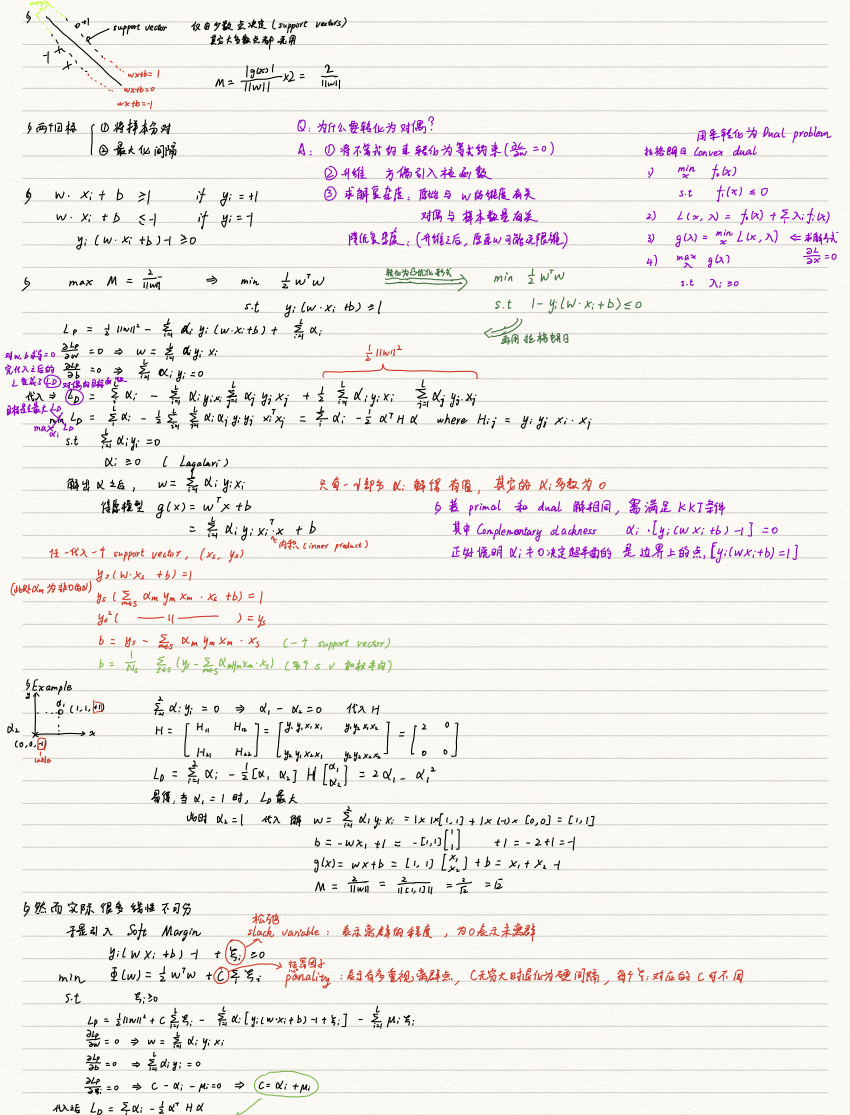 support vector
仅由少数点决定(support vectors)
其它大多数点都无用
wx+b=1
wx+b=0
wx+b=-1
M = |g(x)|/||w|| ×2 = 2/||w||
§ 两个目标
① 将样本分对
② 最大化间隔
Q: 为什么要转化为对偶?
A: ① 将不等式约束转化为等式约束(∂L/∂w=0)
② 升维 方便引入核函数
③ 求解复杂度: 原始与 w的维度有关
对偶与 样本数量有关
降低复杂度:(升维之后,原来w可能无限维)
用来转化为Dual problem
拉格朗日 Convex dual
1) min x f₀(x)
s.t fᵢ(x) ≤ 0
2) L(x, λ) = f₀(x) + Σλᵢfᵢ(x)
3) g(λ) = min x L(x, λ) ⇐ 求解方式 ∂L/∂x=0
4) max λ g(λ)
s.t λᵢ ≥0
§ w · xᵢ + b ≥1 if yᵢ=+1
w · xᵢ + b ≤-1 if yᵢ=-1
yᵢ(w·xᵢ+b)-1≥0
§ max M = 2/||w|| ⇒ min ½wᵀw
s.t yᵢ(w·xᵢ+b)≥1
转化为凸优化形式
min ½wᵀw
s.t 1-yᵢ(w·xᵢ+b)≤0
再用拉格朗日
Lp = ½||w||² - Σαᵢyᵢ(w·xᵢ+b) + Σαᵢ
对w,b求导=0
∂Lp/∂w =0 ⇒ w = Σαᵢyᵢxᵢ
∂Lp/∂b =0 ⇒ Σαᵢyᵢ=0
½||w||²
完代入之后的
L 变成了LD 对偶的目标函数
代入 ⇒ LD = Σαᵢ - Σαᵢyᵢxᵢ Σαⱼyⱼxⱼ + ½ Σαᵢyᵢxᵢ Σαⱼyⱼxⱼ
目标是求最大LD
max αᵢ LD
LD = Σαᵢ - ½ΣΣαᵢαⱼyᵢyⱼxᵢᵀxⱼ = Σαᵢ - ½αᵀHα where Hᵢⱼ = yᵢyⱼxᵢ·xⱼ
s.t Σαᵢyᵢ=0
αᵢ≥0 (Lagalari)
解出α之后, w = Σαᵢyᵢxᵢ
只有一小部分αᵢ解得有值, 其它的αᵢ多数为0
得原模型 g(x) = wᵀx + b
= Σαᵢyᵢxᵢᵀ·x + b
内积(inner product)
§ 若 primal 和 dual 解相同, 需满足KKT条件
其中 Complementary slackness αᵢ·[yᵢ(wxᵢ+b)-1]=0
正好说明 αᵢ≠0决定超平面的 是边界上的点,[yᵢ(wxᵢ+b)=1]
任一代入一个 support vector, (xs, ys)
ys(w·xs+b)=1
(此时αm为非0的α)
ys(Σm∈S αm ym xm · xs + b) = 1
ys²( —— 11 —— ) = ys
b = ys - Σm∈S αm ym xm · xs (一个 support vector)
b = 1/Ns Σs∈S (ys - Σm∈S αm ym xm·xs) (每个 s v 加权平均)
§ Example
y
α₁
(1,1,+1)
α₂
(0,0,-1)
x
lable
Σαᵢyᵢ = 0 ⇒ α₁ - α₂ = 0 代入H
H = [H₁₁ H₁₂ H₂₁ H₂₂] = [y₁y₁x₁x₁ y₁y₂x₁x₂ y₂y₁x₂x₁ y₂y₂x₂x₂] = [2 0 0 0]
LD = Σαᵢ - ½[α₁ α₂] H [α₁ α₂] = 2α₁ - α₁²
易得,当α₁=1时, LD最大
此时 α₂=1 代入 解 w = Σαᵢyᵢxᵢ = 1×1×[1,1] + 1×(-1)×[0,0] = [1,1]
b = -wx₁ +1 = -[1,1][1 1] +1 = -2+1=-1
g(x) = wx+b = [1,1][x₁ x₂] + b = x₁ + x₂ -1
M = 2/||w|| = 2/||[1,1]|| = 2/√2 = √2
§ 然而实际很多线性不可分
于是引入 Soft Margin
松弛
slack variable: 表示离群的程度, 为0表示未离群
yᵢ(wxᵢ+b)-1 + ξᵢ ≥0
min Φ(w) = ½wᵀw + CΣξᵢ
惩罚因子
panality: 表示有多重视离群点, C无穷大时退化为硬间隔, 每个ξᵢ对应的C可不同
s.t ξᵢ≥0
Lp = ½||w||² + CΣξᵢ - Σαᵢ[yᵢ(w·xᵢ+b)-1+ξᵢ] - Σμᵢξᵢ
∂Lp/∂w =0 ⇒ w = Σαᵢyᵢxᵢ
∂Lp/∂b =0 ⇒ Σαᵢyᵢ=0
∂Lp/∂ξᵢ =0 ⇒ C-αᵢ-μᵢ=0 ⇒ C=αᵢ+μᵢ
代入后 LD = Σαᵢ - ½αᵀHα